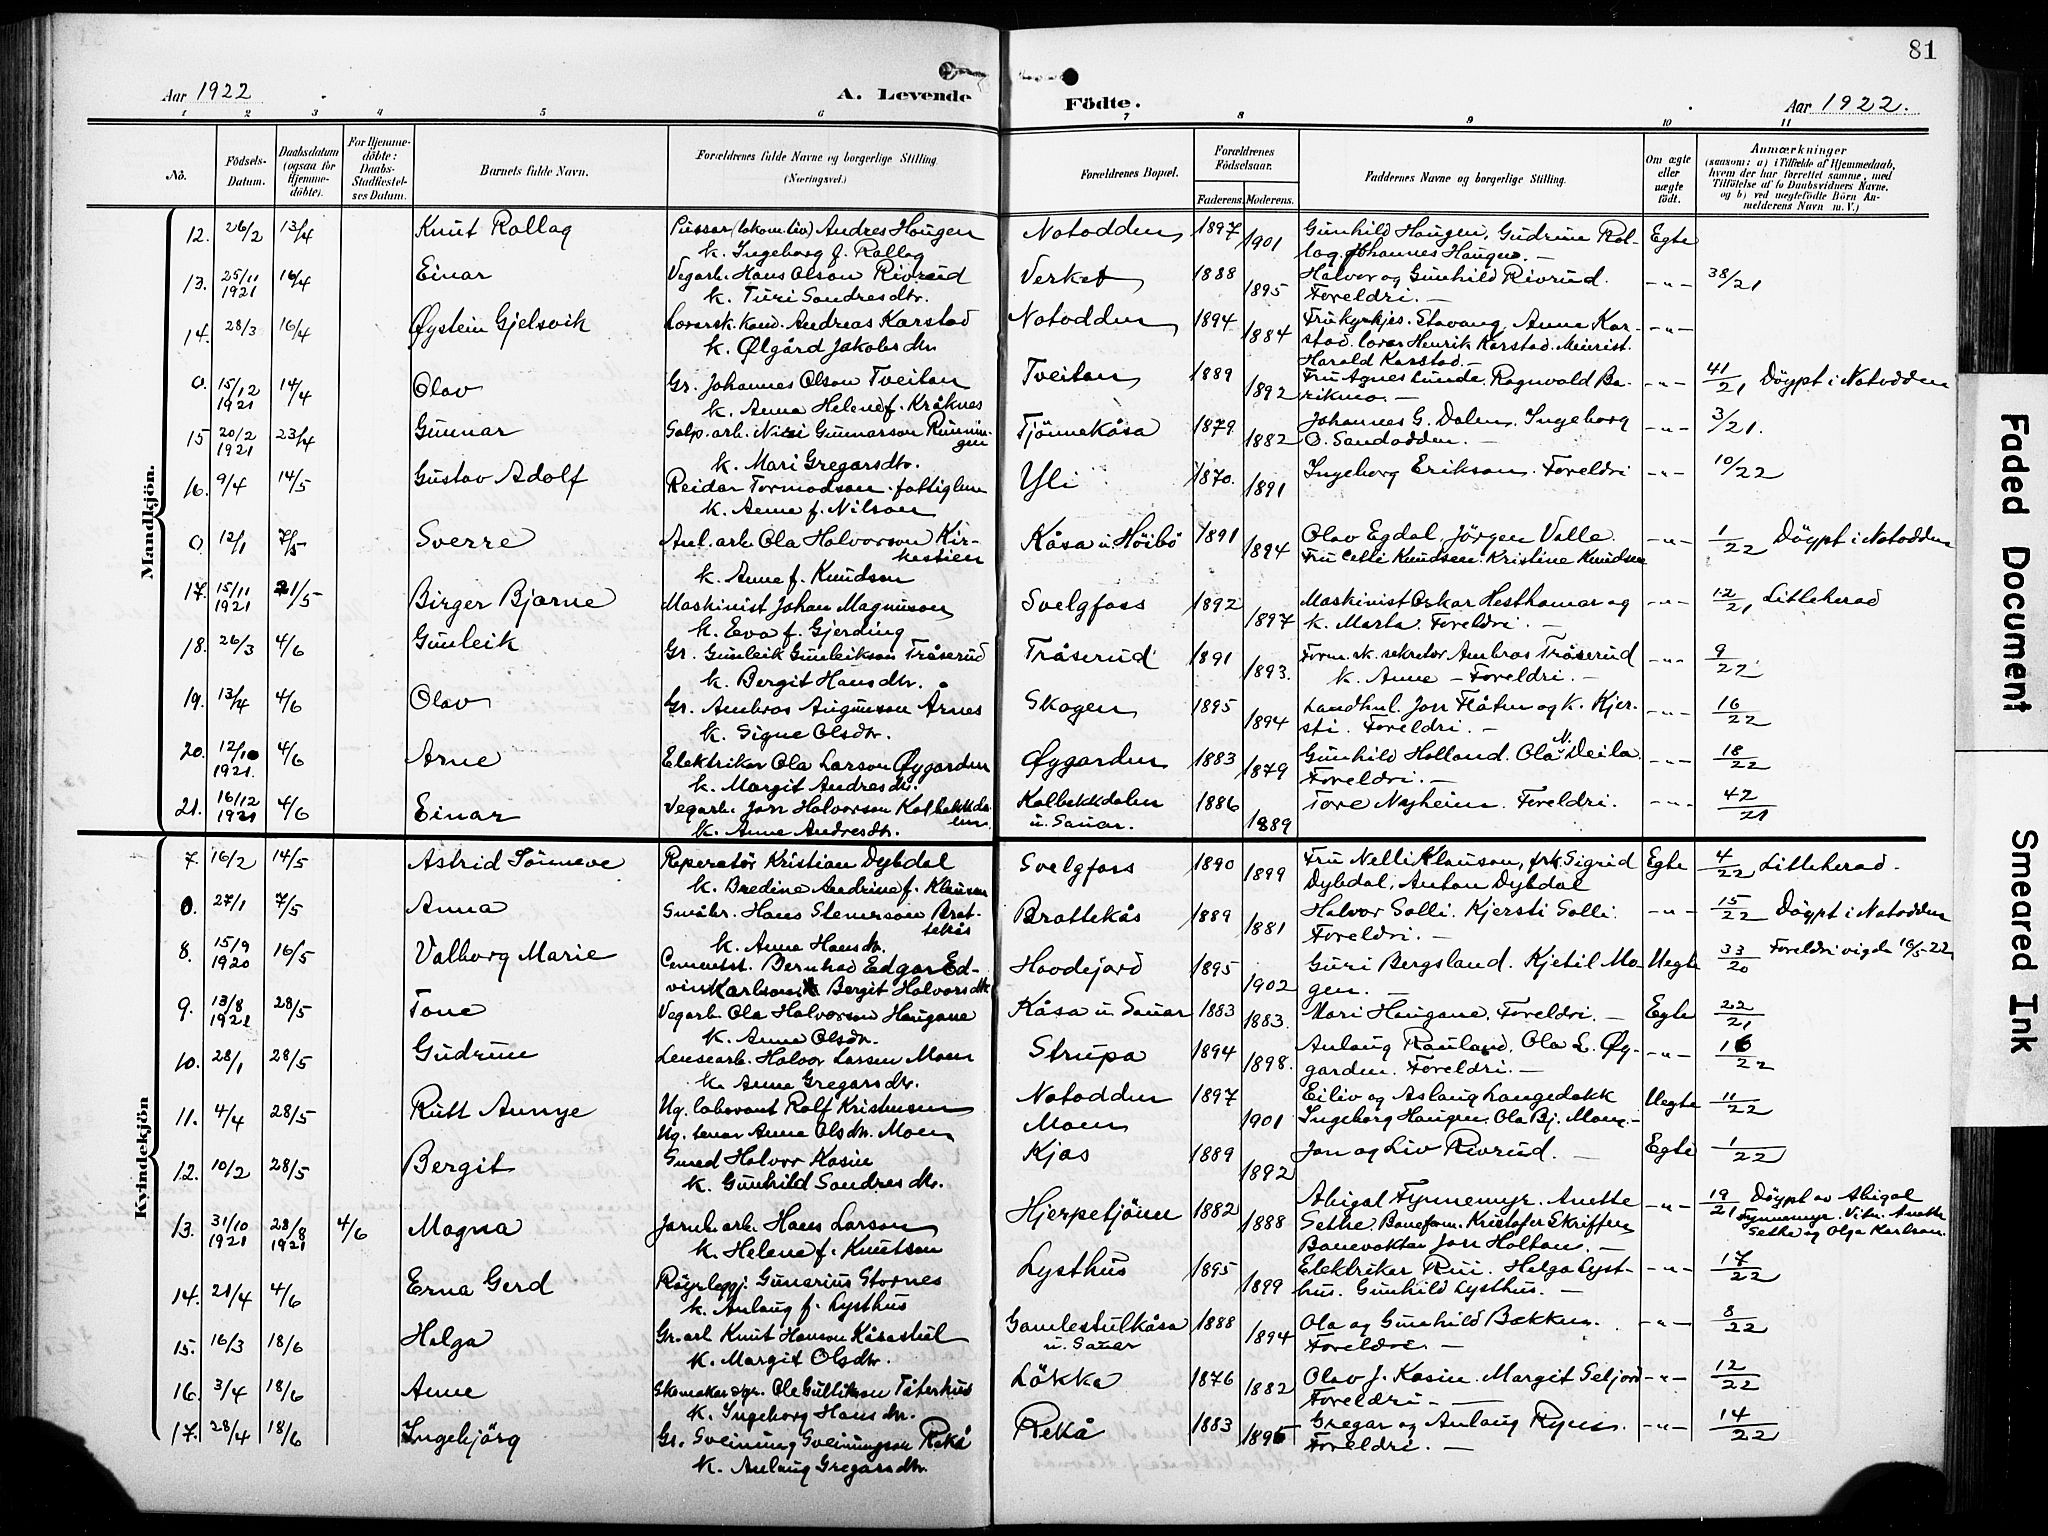 81
Aar 1922
A. Levende
Födte.
Aar 1922.
1 2 3 4 5 6 7 8 9 10 11
No.
Födsels-Datum.
Daabsdatum (ogsaa for Hjemmedöbte).
For Hjemmedöbte: Daabs-Stadfæstelses Datum.
Barnets fulde Navn.
Forældrenes fulde Navne og borgerlige Stilling. (Næringsvei.)
Forældrenes Bopæl.
Forældrenes Födselsaar.
Faderens. Moderens.
Faddernes Navne og borgerlige Stilling.
Om ægte eller uægte födt.
Anmærkninger
(saasom: a) i Tilfælde af Hjemmedaab, hvem der har forrettet samme, med Tilföielse af to Daabsvidners Navne, og b) ved uægtefödte Börn Anmelderens Navn m. V.)
Mandkjön.
12. 26/2 13/4 Knut Rollag Pussar (lokom.liv) Andres Haugen Notodden 1897 Gunhild Haugen. Gudrun Rol- Egte
k. Ingeborg f. Rollag 1901 lag. Johannes Haugen. —
13. 25/11 1921 16/4 Einar Vegarb. Hans Olson Rivrud Verket 1888 Halvor og Gunhild Rivrud. -"- 38/21
k. Turi Sondresdtr. 1895 Foreldri. —
14. 28/3 16/4 Øystein Gjelsvik Lærarsk. kand. Andreas Karstad Notodden 1894 Fru kyrkjes. Stavang, Anne Kar- -"-
k. Ølgård Jakobsdtr. 1884 stad. lærar Henrik Karstad. Minist.
Harald Karstad. —
0. 15/12 1921 14/4 Olav Gr. Johannes Olson Tveitan Tveitan 1889 Fru Agnes Lunde. Ragnvald Ba- -"- 41/21 Döypt i Notodden
k. Anna Helene f. Kråknes 1892 rikmo. —
15 20/2 1921 23/4 Gunnar Salp. arb. Nizi Gunnarson Runningen Tjönnekåsa 1879 Johannes G. Dalen. Ingeborg -"- 3/21.
k. Mari Gregarsdtr. 1882 O. Sandodden. —
16. 9/4 14/5 Gustav Adolf Reidar Tormodson. fattiglem Yli 1870. Ingeborg Erikson. Foreldri -"- 10/22
k. Anne f. Nilson 1891
0 12/1 7/5 Sverre Anl. arb. Ola Halvorson Kirkestien Kåsa u. Höibö 1891 Olav Egdal, Jörgen Valle. -"- 1/22 Döypt i Notodden
k. Anne f. Knudson 1894 Fru Celli Knudsen. Kristine Knudsen
17. 15/11 1921 21/5 Birger Bjarne Maskinist Johan Magnuson Svelgfoss 1892 Maskinist Oskar Hesthamar og -"- 12/21 Litleherad
k. Eva f. Gjerding 1897 k. Marta. Foreldri. —
18. 26/3 4/6 Gunleik Gr. Gunleik Gunleikson Tråserud Tråserud 1891 Form. sk. sekretær Ambros Tråserud -"- 9/22
k. Bergit Hansdtr. 1893. k. Anne — Foreldri. —
19. 13/4 4/6 Olav Gr. Ambros Augunson Årnes Skogen 1895 Landhnl. Jon Flåten og k. Kjer- -"- 16/22
k. Signe Olsdtr. 1894 sti. Foreldri. —
20. 12/10 1921. 4/6 Arne Elektriker Ola Larson Øygarden Øygarden 1883 Gunhild Holland. Ola N. Deila. -"- 18/22
k. Margit Andresdtr. 1879 Foreldri. —
21. 16/12 1921 4/6 Einar Vegarb. Jon Halvorson Kolbekkdalen Kolbekkdalen u. Sauar. 1886 Tore Nyheim. Foreldri. -"- 42/21
k. Anne Andresdtr. 1889
Kvindekjön
7. 16/2 14/5 Astrid Sönneve Reparatør Kristian Dybdal Svelgfoss 1890 Fru Nelli Klauson, frk. Sigrid Egte 4/22 Litleherad.
k. Bredine Andrine f. Klauson 1899 Dybdal, Anton Dybdal
0. 27/1 7/5 Anna Småbr. Hans Stenerson Brattekås Brattekås 1889 Halvor Solli. Kjersti Solli. -"- 15/22 Döypt i Notodden
k. Anne Hansdtr. 1881 Foreldri. —
8. 15/9 1920 16/5 Valborg Marie Cementst. Bernhad Edgar Ed- Hovdejord 1895 Guri Bergsland. Kjetil Mo- Uegte 33/20 Foreldri vigde 16/5-22
vin Karlson k. Bergit Halvorsdtr. 1902 gen. —
9. 13/8 1921 28/5 Tone Vegarb. Ola Halvorson Haugane Kåsa u. Sauar 1883 Mari Haugane. Foreldri. — Egte 22/21
k. Anne Olsdtr. 1883.
10. 28/1 28/5 Gudrun Lensearb. Halvor Larsen Moen Strupa 1894 Anlaug Rauland. Ola L. Øy- -"- 16/22
k. Anne Gregarsdtr. 1898. garden. Foreldri. —
11. 4/4 28/5 Rutt Aunye Ug. laborant Rolf Kristensen Notodden 1897 Eiliv og Aslaug Langedokk Uegte 11/22
Ug. tenar Anne Olsdtr. Moen Moen 1901 Ingeborg Haugen. Ola Bj. Moen.—
12. 10/2 28/5 Bergit Smed Halvor Kasin Kjos 1889 Jon og Liv Rivrud. — Egte 1/22
k. Gunhild Sondresdtr. 1892
13. 31/10 1921 28/8 1921 4/6 Magna Jarnb. arb. Hans Larson Hjerpetjönn 1882 Abigal Tynnemyr. Anette -"- 19/21 Döypt av Abigal
k. Helene f. Knutson 1888 Sethe, Baneform. Kristofer Skriffen, Tynnemyr. Vitn. Anette
Banevakter Jon Holtan. — Sethe og Olga Karlson.
14. 21/4 4/6 Erna Gerd Röyrleggj. Gunarius Stornes Lysthus 1895 Elektrikar Rui. Helga Lyst- -"- 17/22
k. Anlaug f. Lysthus 1899 hus. Gunhild Lysthus. —
15. 16/3 18/6 Helga Gr. arb Knut Hanson Kåsastul Gamlestulkåsa u. Sauar 1888 Ola og Gunhild Bakken. -"- 8/22
k. Margit Olsdtr. 1894 Foreldri. —
16. 3/4 18/6 Anne Skomakar Ole Gullikson Täterhus Lökka 1876 Olav J. Kasin. Margit Seljord -"- 12/22
k. Ingeborg Hansdtr. 1882 Foreldri. —
17. 28/4 18/6 Ingebjörg Gr. Sveinung Sveinungson Rekå Rekå 1883 Gregar og Anlaug Ryen. -"- 14/22
k. Anlaug Gregarsdtr. 1895 Foreldri. —
Faded Document
Smeared Ink